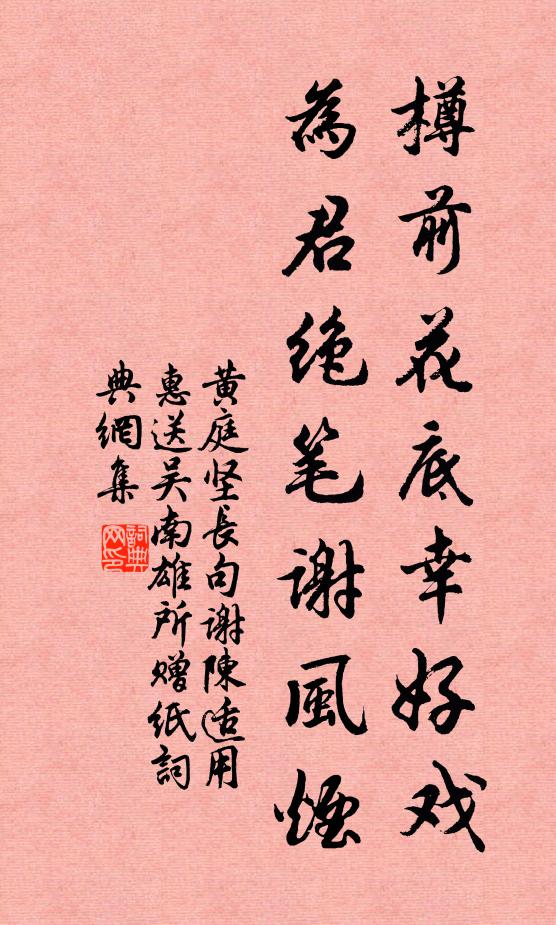 樽前花底幸好戏
為君绝笔谢風煙
黄庭坚長句谢陳适用
惠送吴南雄所赠纸詞
典網集
詞典
网印